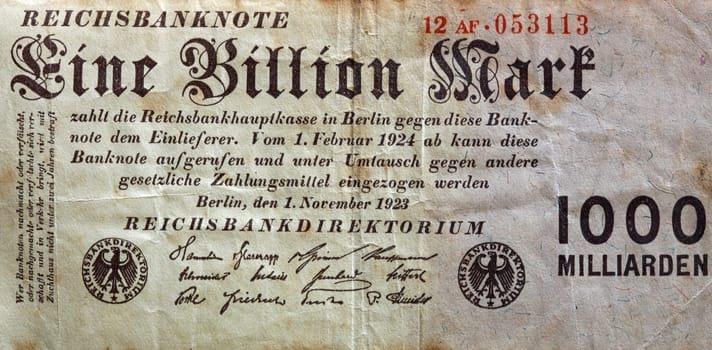 REICHSBANKNOTE
12 AF·053113
Eine Billion Mark
zahlt die Reichsbankhauptkasse in Berlin gegen diese Bank-
note dem Einlieferer. Vom 1. Februar 1924 ab kann diese
Banknote aufgerufen und unter Umtausch gegen andere
gesetzliche Zahlungsmittel eingezogen werden
Berlin, den 1. November 1923
REICHSBANKDIREKTORIUM
Wer Banknoten nachmacht oder verfälscht,
oder nachgemachte oder verfälschte sich ver-
schafft und in Verkehr bringt, wird mit
Zuchthaus nicht unter zwei Jahren bestraft
REICHSBANKDIREKTORIUM
REICHSBANKDIREKTORIUM
1000
MILLIARDEN